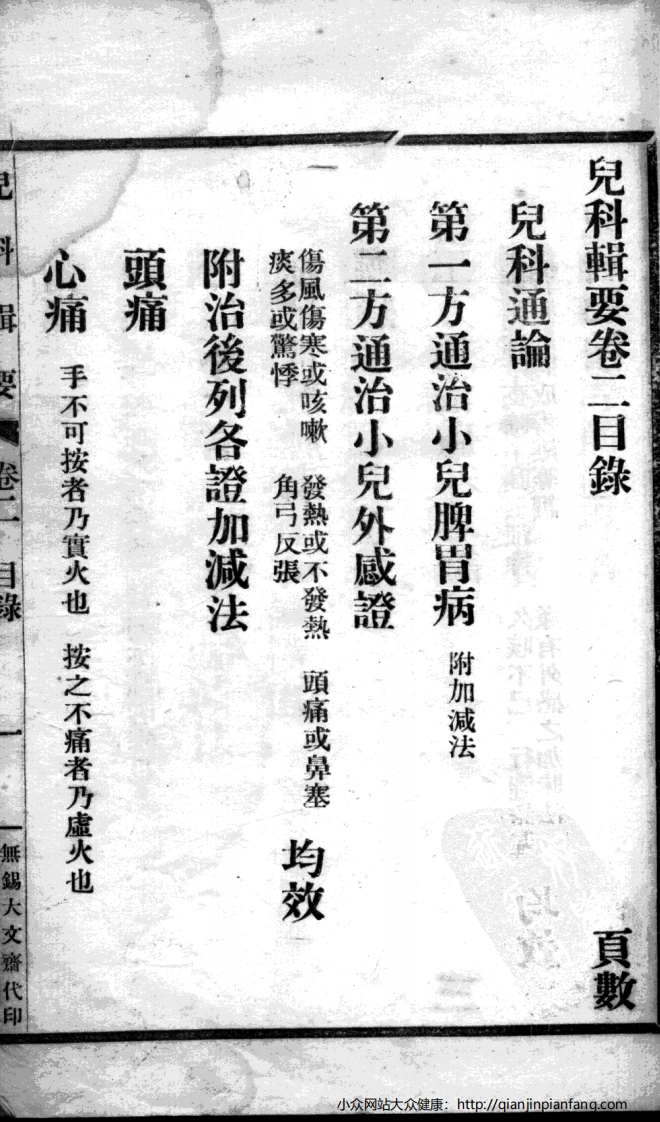 兒科輯要卷二目錄
頁數
兒科通論
第一方通治小兒脾胃病 附加減法
第二方通治小兒外感證
傷風傷寒或咳嗽 發熱或不發熱 頭痛或鼻塞
痰多或驚悸 角弓反張
均效
附治後列各證加減法
頭痛
心痛 手不可按者乃實火也 按之不痛者乃虛火也
兒科輯要 卷二 目錄 一 無錫大文齋代印
小众网站大众健康：http://qianjinpianfang.com